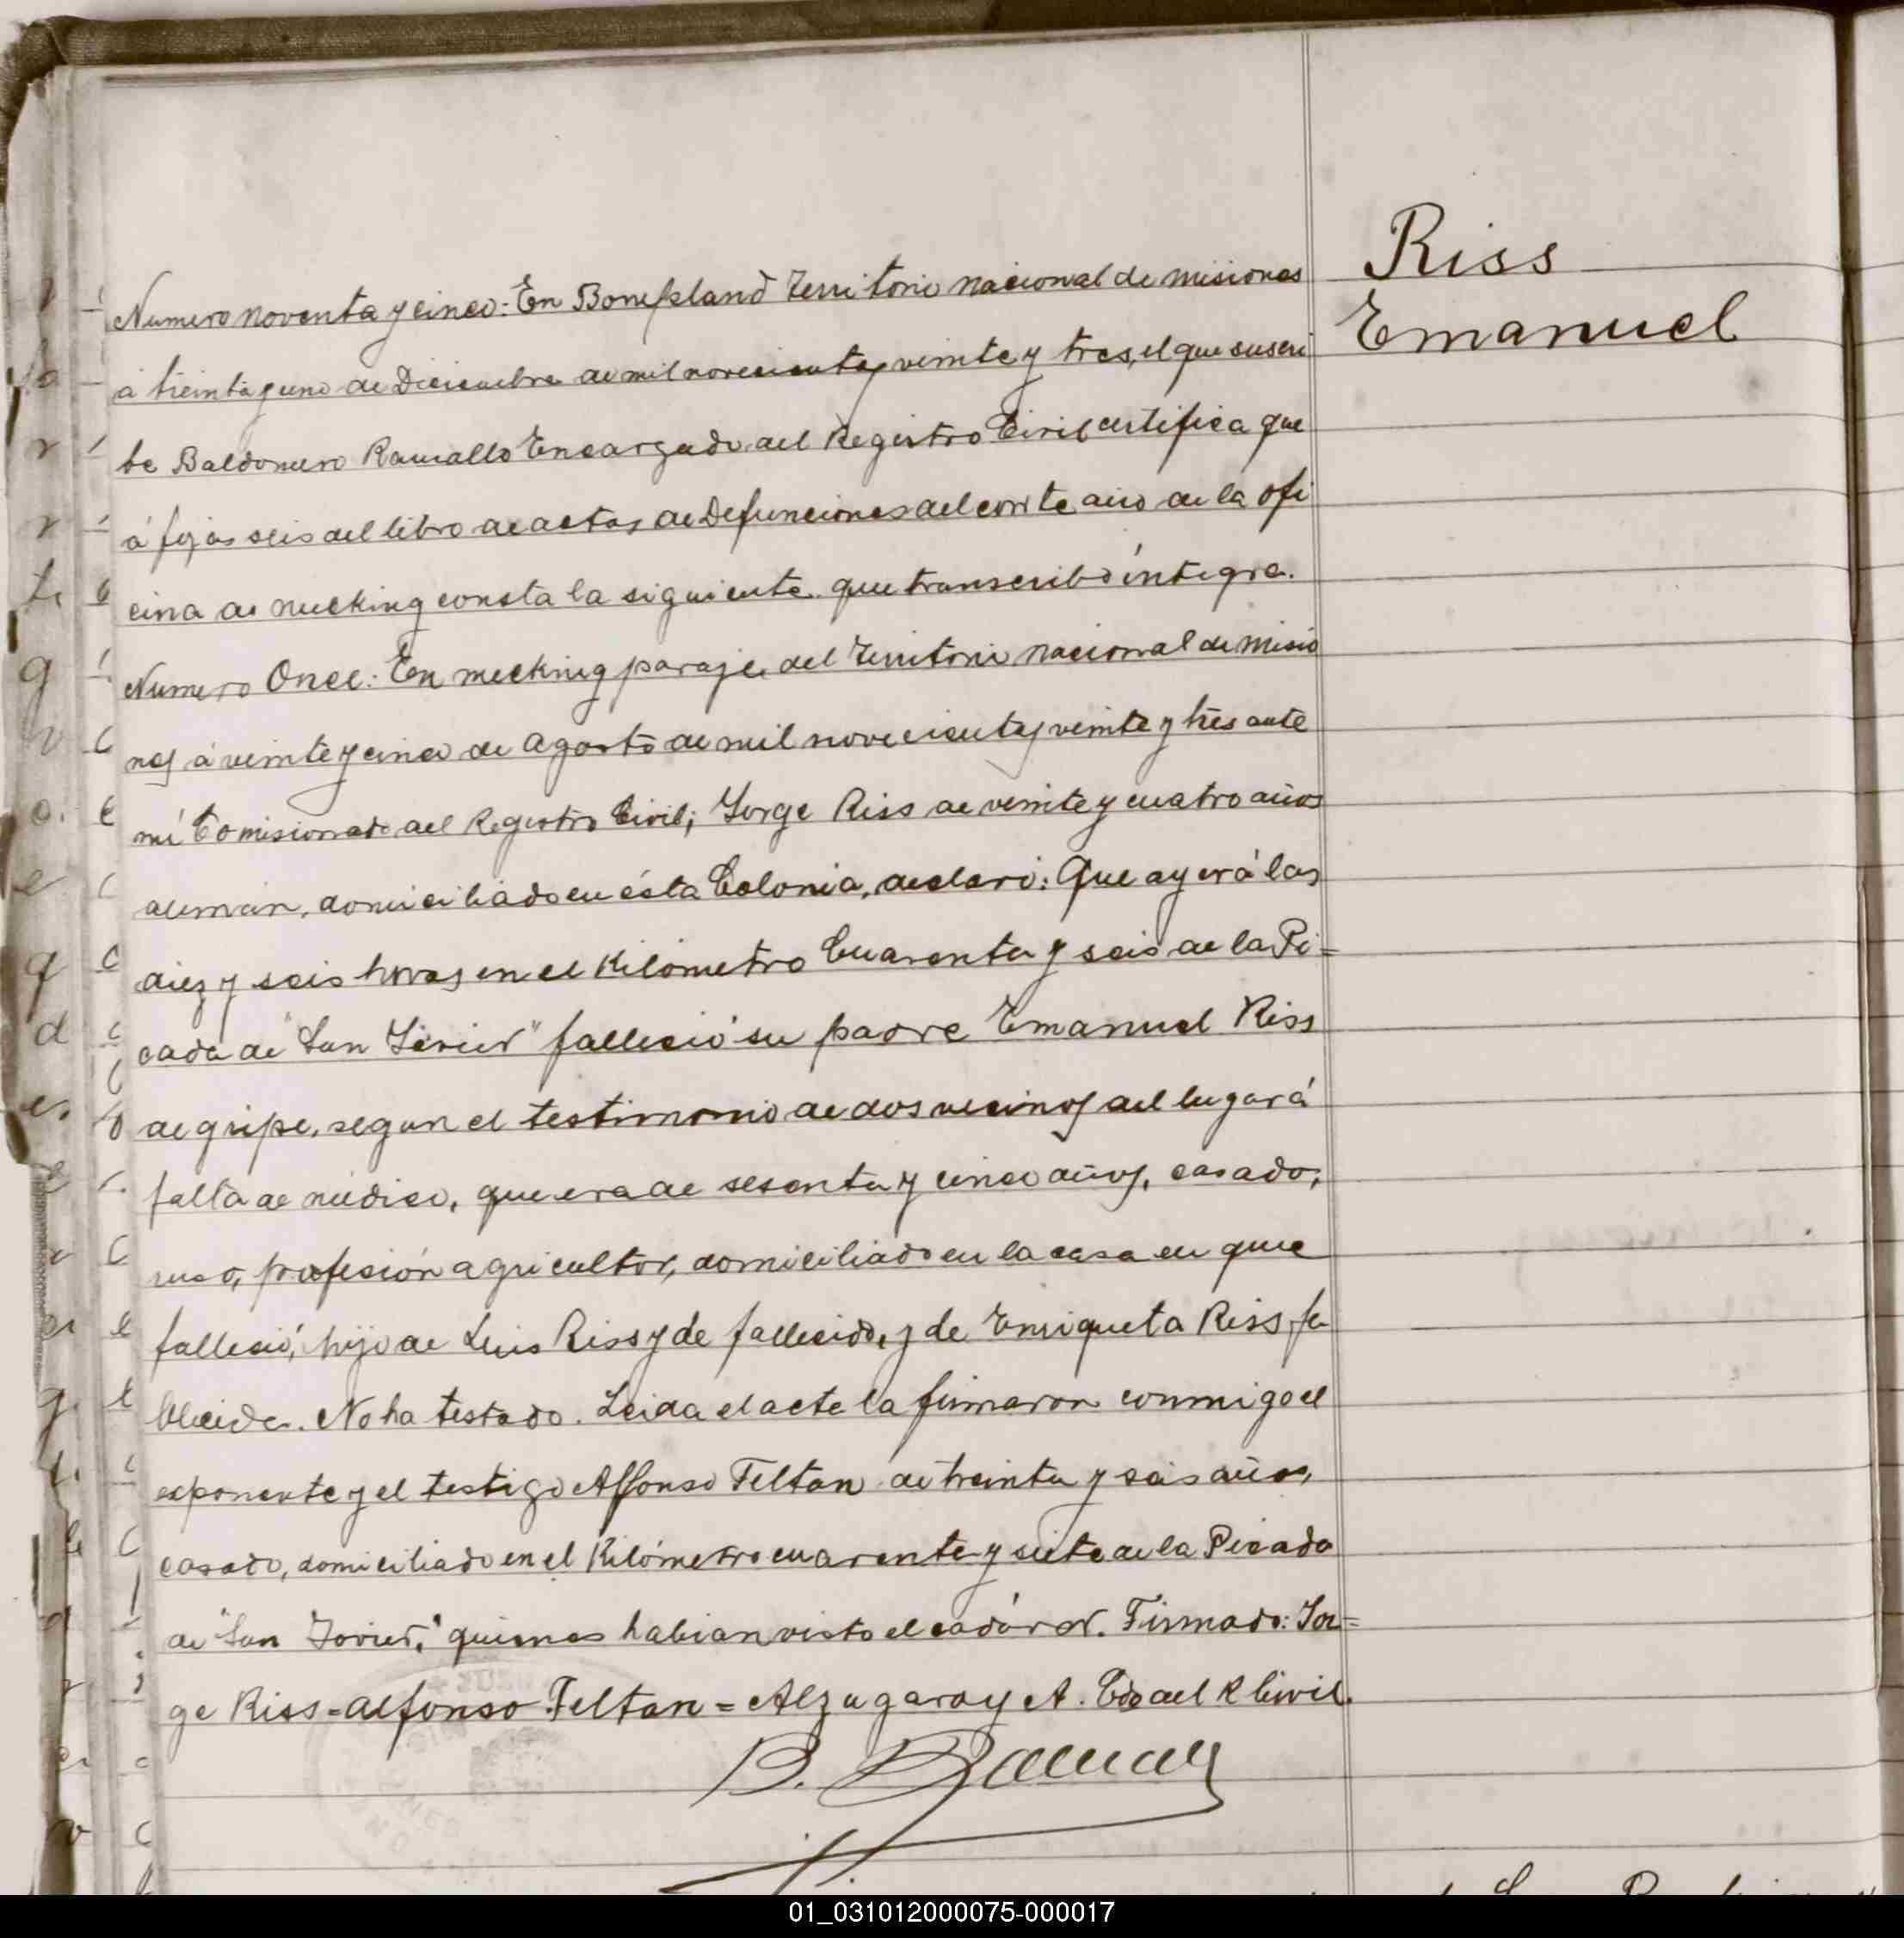 Riss
Emanuel
Numero noventa y cinco: En Bonpland Territorio nacional de misiones
á treinta y uno de Diciembre de mil novecientos veinte y tres, el que suscri
be Baldomero Ramallo Encargado del Registro Civil certifica que
á fojas seis del libro de actas de Defunciones del corrte año de la ofi
cina de mecking consta la siguiente que transcribo íntegra.
Numero Once: En mecking paraje del Territorio nacional de misio
nes á veinte y cinco de agosto de mil novecientos veinte y trés ante
mí Comisionado del Registro Civil; Jorge Riss de veinte y cuatro años
alemán, domiciliado en ésta Colonia, declaró: Que ayer á las
diez y seis horas en el Kilómetro Cuarenta y seis de la Pi=
cada de "San Javier" falleció su padre Emanuel Riss
de gripe, segun el testimonio de dos vecinos del lugar á
falta de médico, que era de sesenta y cinco años, casado,
ruso, profesión agricultor, domiciliado en la casa en que
falleció, hijo de Luis Riss y de fallecido, y de Enriqueta Riss, fa
llecida. No ha testado. Leida el acta la firmaron conmigo el
exponente y el testigo Alfonso Feltan de treinta y seis años,
casado, domiciliado en el Kilómetro cuarenta y siete de la Picada
de "San Javier," quienes habian visto el cadáver. Firmado: Jor=
ge Riss = alfonso Feltan = Alzugaray A. Edo del R Civil.
01_031012000075-000017